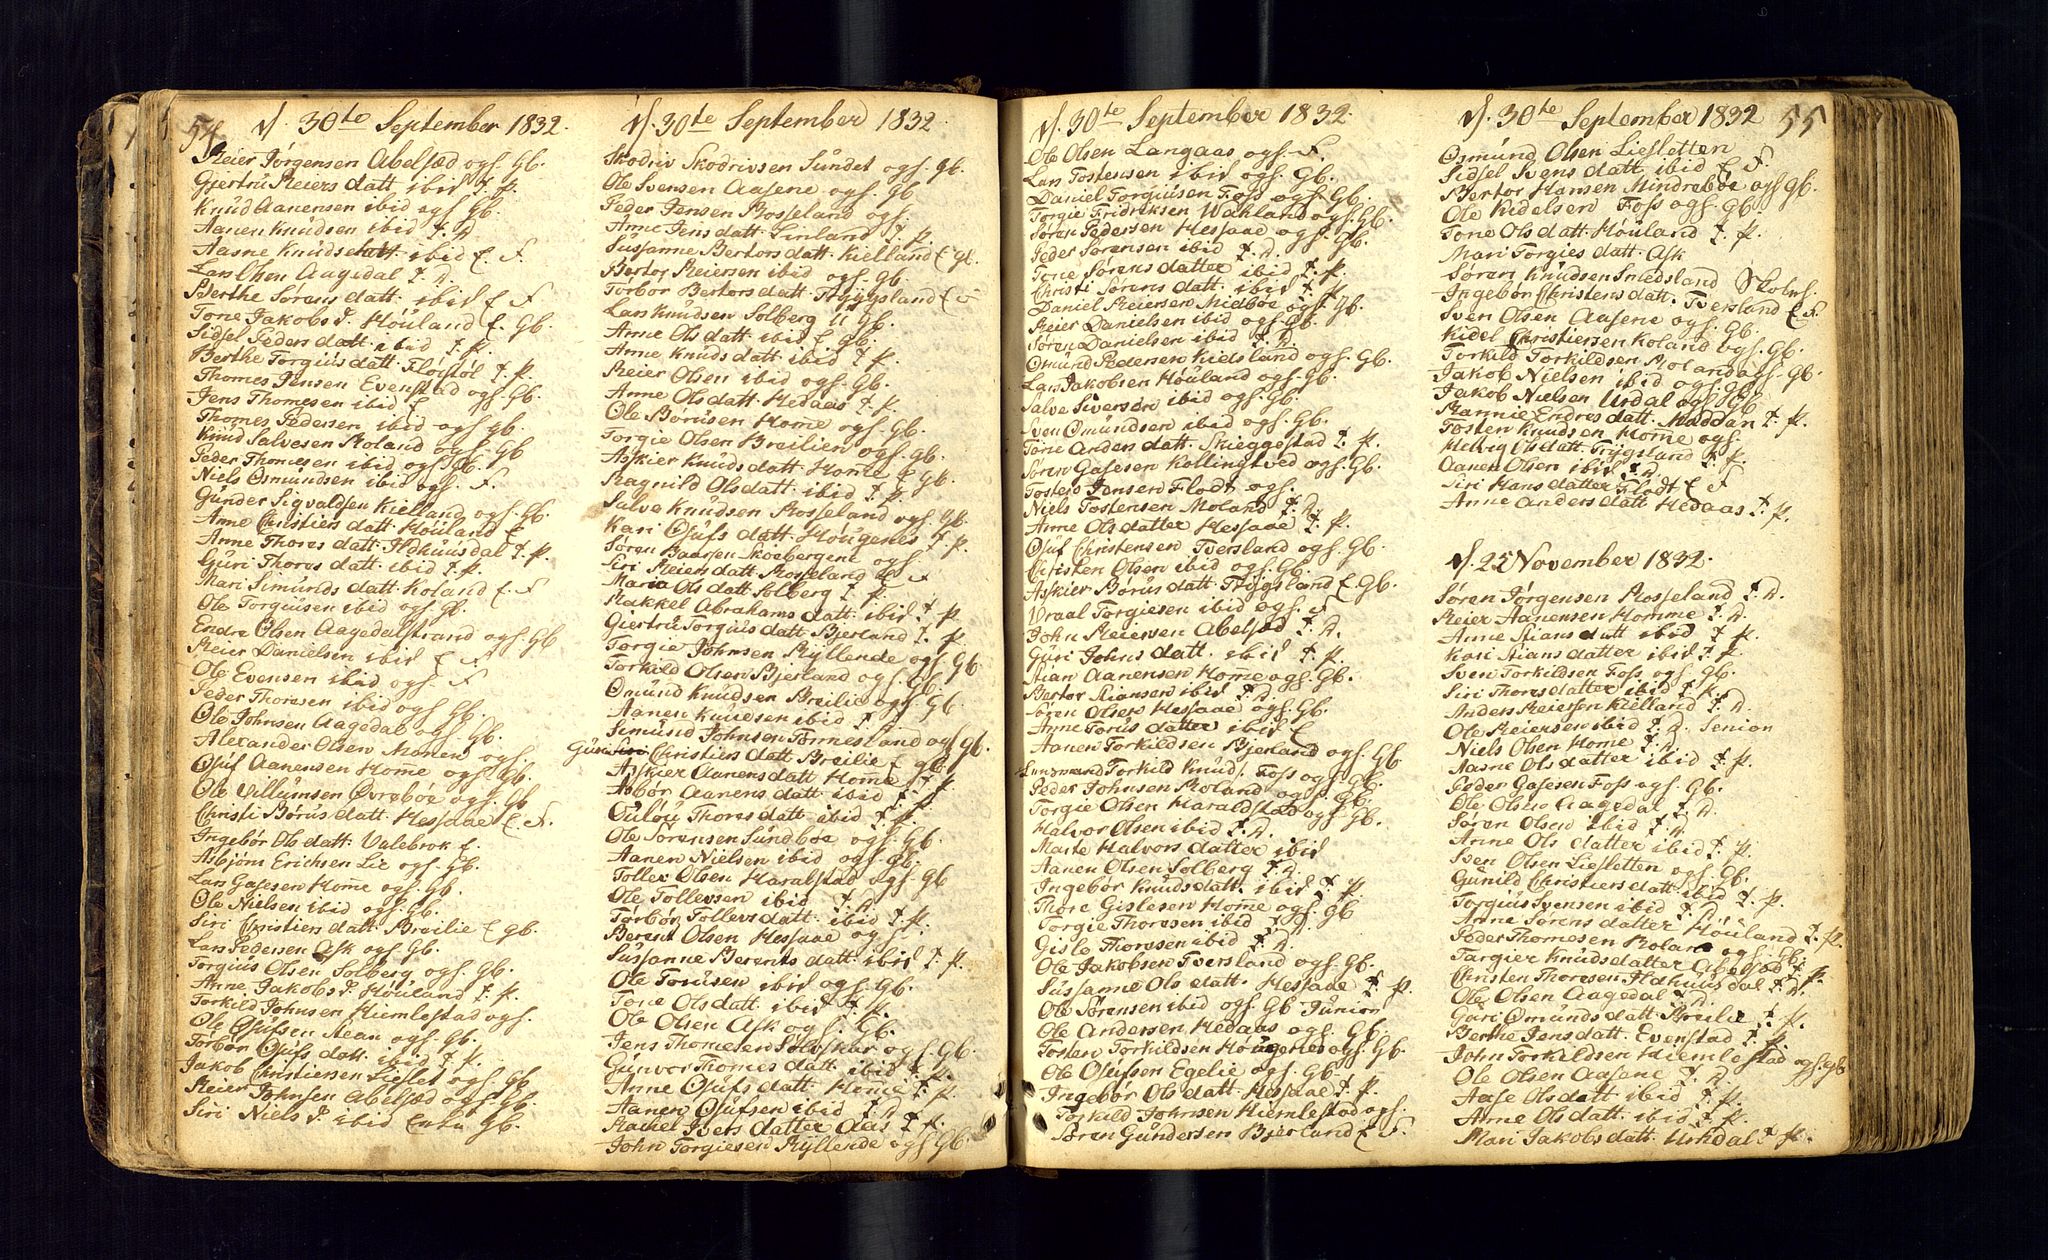 54
d. 30te September 1832.
Reier Jørgensen Abelsæd ogs. Gb.
Gjertru Reiers datt ibid T. P.
Knud Aanensen ibid ogs Gb.
Aanen Knudsen ibid T. D.
Aasne Knudsdatt ibid E. F.
Lars Olsen Aagedal T. D.
Berthe Sørens datt. ibid E F
Tone Jakobs D. Høuland E. Gb.
Sidsel Peders datt ibid T. P.
Berthe Torgius datt. Fløistøl T. P.
Thomes Jensen Evenstad ogs. Gb.
Jens Thomesen ibid E
Thomes Pedersen ibid ogs Gb.
Knud Salvesen Roland ogs Gb
Peder Thomesen ibid ogs Gb.
Niels Osmundsen ibid ogs. F.
Gunder Sigvaldsen Kielland ogs. Gb.
Anne Christiers datt. Høuland E
Anne Thores datt. Ildhuusdal T. P.
Guri Thores datt. ibid T. P.
Mari Simunds datt. Roland E. F
Ole Torgiusen ibid ogs. Gb.
Endre Olsen Aagedalstrand ogs. Gb
Reier Danielsen ibid E F
Ole Evensen ibid ogs. F
Peder Thoresen ibid ogs Gb.
Ole Johnsen Aagedal ogs. Gb.
Alexander Olsen Monen ogs.
Osuf Aanensen Home ogs. Gb.
Ole Villumsen Øvrebøe ogs. Gb
Christi Børus datt. Hessaae E. F.
Ingebør Ols datt. Valebrok E.
Asbjørn Erichsen Lie ogs. Gb.
Lars Gasesen Home ogs. Gb.
Ole Nielsen ibid ogs. Gb.
Siri Christiers datt. Breilie E Gb.
Lars Pedersen Ask ogs. Gb.
Torgius Olsen Solberg ogs. Gb.
Anne Jakobs D. Høuland T. P.
Torkild Johnsen Hiemlestad ogs.
Ole Osufsen Mean ogs. Gb.
Torbør Osufs datt. ibid T. P.
Jakob Christiersen Lieslet ogs Gb.
Reier Johnsen Abelsæd ogs. Gb.
Siri Niels D. ibid Enke Gb.
d. 30te September 1832
Skodriv Skodrivsen Sundet ogs. Gb.
Ole Svensen Aasene ogs Gb
Peder Jensen Rosseland ogs.
Anne Jens datt. Linland T. P.
Susanne Bertors datt. Kielland E Gb.
Bertor Reiersen ibid ogs Gb.
Torbør Bertors datt. Tryggsland E F
Lars Knudsen Solberg U Gb.
Anne Ols datt. ibid E Gb.
Anne Knuds datt ibid T. P.
Reier Olsen ibid ogs. Gb.
Anne Ols datt. Hedaas T. P.
Ole Børusen Home ogs. Gb.
Torgie Olsen Breilien ogs. Gb.
Askier Knuds datt. Home E Gb.
Ragnild Ols datt. ibid T. P.
Salve Knudsen Rosseland ogs. Gb.
Kari Osufs datt. Høugenes T. P.
Søren Baarsen Skoebergene ogs
Siri Reiers datt. Rosseland E F
Maria Ols datt Solberg T. P.
Rakkel Abrahams datt. ibid T. P.
Giertru Torgius datt. Bjerland T. P.
Torgie Johnsen Ryllende ogs Gb.
Torkild Olsen Bjerland ogs. Gb.
Omund Knudsen Breilie ogs Gb
Aanen Knudsen ibid T. D
Simund Johnsen Tonnesland ogs Gb.
Guri Christiers datt. Breilie E Gb.
Askier Aanens datt. Home T. P.
Asbør Aanens datt. ibid T. P.
Oulou Thores datt. ibid T. P.
Ole Sørensen Sundboe ogs. Gb.
Aanen Nielsen ibid ogs. Gb.
Toller Olsen Haralstad ogs Gb
Ole Tollevsen ibid T. D
Torbør Tollevs datt. ibid T. P.
Berent Olsen Hessaae ogs.
Susanne Berents datt. ibid T. P.
Ole Torusen ibid ogs Gb.
Tone Ols datt. ibid T. P.
Ole Olsen Ask ogs. Gb.
Jens Thomesen Solvskar ogs Gb.
Gunvor Thomes datt. ibid T. P.
Anne Osufs datt. Home T. P.
Aanen Osufsen ibid T. D
Rakel Ivers datter Aas T. P.
John Torgiesen Ryllende ogs Gb.
d. 30te September 1832.
Ole Olsen Langaas ogs. F.
Lars Tostensen ibid ogs. Gb.
Daniel Torgiusen Foss ogs. Gb
Torgie Fridriksen Wakland ogs. Gb.
Søren Pedersen Hessaae ogs. Gb.
Peder Sørensen ibid T. D.
Tone Sørens datter ibid T. P.
Christi Sørens datt. ibid T. P.
Daniel Reiersen Midbøe ogs. Gb.
Reier Danielsen ibid ogs Gb.
Søren Danielsen ibid T. D.
Omund Pedersen Kielsland ogs. Gb.
Lars Jakobsen Høuland ogs. Gb.
Salve Siversen ibid ogs. Gb.
Sven Omundsen ibid ogs. Gb.
Tone Anders datt. Skieggestad T. P.
Søren Gasesen Kollingtved ogs. Gb.
Tosten Jensen Flodt ogs.
Niels Tostensen Moland T. D.
Anne Ols datter Hessaae T. P.
Osuf Christensen Tversland ogs. Gb.
Christen Olsen ibid ogs. Gb.
Askier Børus datt. Trygsland E Gb.
Vraal Torgiesen ibid ogs. F
John Reiersen Abelsæd T. D.
Guri Johns datt. ibid T. P.
Stian Aanensen Home ogs. Gb.
Bertor Stiansen ibid T. D.
Søren Olsen Hessaae ogs. Gb.
Anne Torus datter ibid E
Aanen Torkildsen Bjerland ogs. Gb
Lensmand Torkild Knuds. Foss ogs Gb.
Peder Johnsen Roland ogs. Gb.
Torgie Olsen Haraldstad ogs. Gb.
Halvor Olsen ibid T. D.
Marte Halvors datter ibid
Aanen Olsen Solberg T. D.
Ingebør Knuds datt. ibid T. P.
Thore Gislesen Home ogs. Gb
Torgie Thoresen ibid T. D.
Gisle Thoresen ibid T. D.
Ole Jakobsen Tversland ogs. Gb.
Susanne Ols datt. Hessaae T. P.
Ole Sørensen ibid ogs. Gb Junior
Ole Andersen Hedaas ogs. Gb.
Tosten Torkildsen Høugenes ogs. Gb.
Ole Osufsen Egelie ogs. Gb.
Ingebør Ols datt. Hessaae T. P.
Torkild Johnsen Hiemlestad ogs.
Søren Gundersen Bjerland E F.
d. 30te September 1832 55
Osmund Olsen Liesletten
Sidsel Svens datt ibid E F.
Bertor Hansen Mindrebøe ogs Gb.
Ole Kidelsen Foss ogs. Gb.
Tone Ols datt. Høuland T. P.
Mari Torgies datt. Ask
Søren Knudsen Smedsland Skolh.
Ingebør Christens datt. Tversland E F
Sven Olsen Aasene ogs. Gb.
Kidel Christiersen Roland ogs. Gb.
Torkild Torkildsen Roland ogs. Gb.
Jakob Nielsen ibid ogs Gb
Jakob Nielsen Urdal ogs Gb
Rannie Endres datt. Høddan T. P.
Tosten Knudsen Home ogs.
Helvig Ols datt. Trygsland T. P.
Aanen Olsen ibid T. D
Siri Hans datter Flodt E F
Anne Anders datt. Hedaas T. P.
d. 25 November 1832.
Søren Jørgensen Rosseland T. D.
Reier Aanensen Homme T. D.
Anne Stians datt ibid T. P.
Kari Stians datter ibid T. P
Sven Torkildsen Foss ogs Gb.
Siri Thores datter ibid T. P.
Anders Reiersen Kielland T. D
Ole Reiersen ibid T. D. Senior
Niels Olsen Home T. D
Aasne Ols datter ibid T. P
Peder Gasesen Foss ogs. Gb.
Ole Olsen Aagedal T. D.
Søren Olsen ibid T. D.
Anne Ols datter ibid T. P.
Sven Olsen Liesletten ogs. Gb.
Gunild Christiers datt. ibid T. P.
Torgius Svensen ibid T. D.
Anne Sørens datter Høuland T. P.
Peder Thomesen Roland ogs. Gb.
Targier Knuds datter Abelsæd T. P.
Christen Thoresen Ildhuusdal T. D.
Ole Olsen Aagedal T. D.
Guri Omunds datt. Breilie T. P.
Berthe Jens datt. Evenstad T. P.
John Torkildsen Hiemlestad ogs. Gb
Ole Olsen Aasene T. D.
Aase Ols datt. ibid T. P.
Anne Ols datt. ibid T. P.
Mari Jakobs datt. Urkdal T. P.